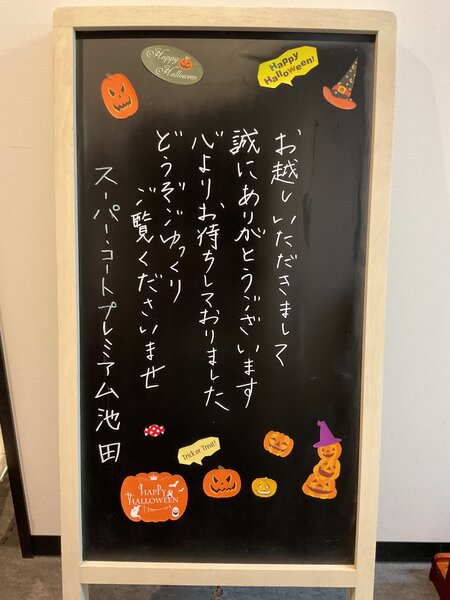 Happy Halloween
Happy Halloween!
お越しいただきまして
誠にありがとうございます
心よりお待ちしておりました
どうぞごゆっくり
ご覧くださいませ
スーパー・コートプレミアム池田
Trick or Treat!
HAPPY
HALLOWEEN